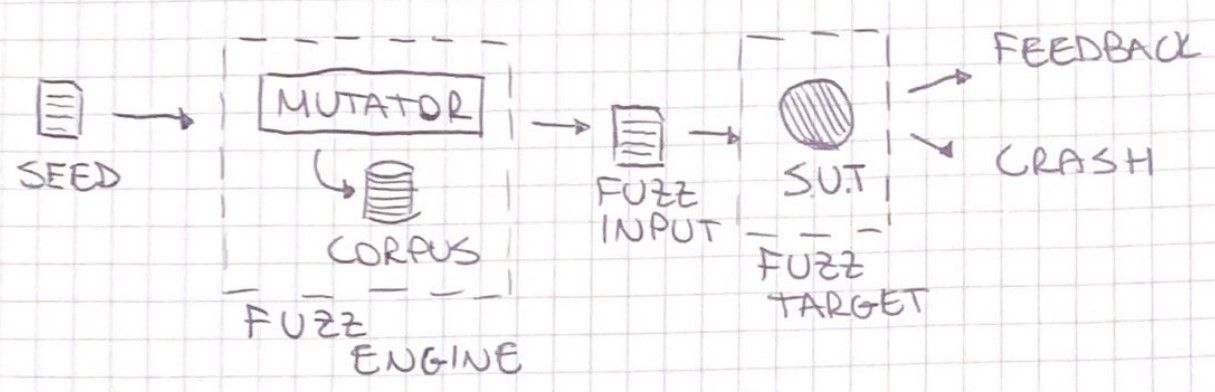 SEED
MUTATOR
CORPUS
FUZZ
ENGINE
FUZZ
INPUT
S.U.T
FUZZ
TARGET
FEEDBACK
CRASH